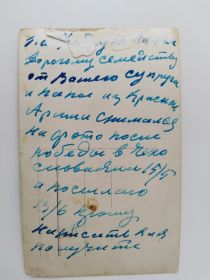 Дорогому семейству
от Вашего супруга
и папы из Красной
Армии снимался
на фото после
победы в Чехо
словакии 15/5
а послал 
13/6 прошу
напишите как
получите